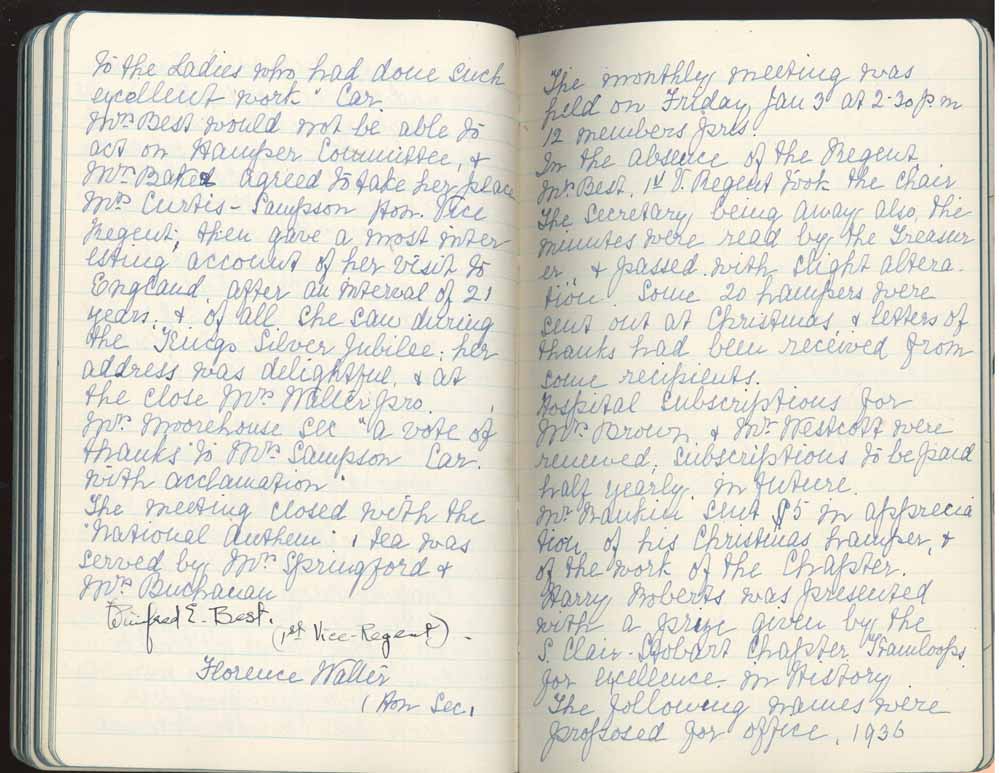 to the Ladies who had done such
excellent work" Car.
Mrs Best would not be able to
act on Hamper Committee, &
Mrs Baker agreed to take her place
Mrs Curtis-Sampson Hon. Vice
Regent, then gave a most inter
esting account of her visit to
England, after an interval of 21
years, & of all she saw during
the Kings Silver Jubilee; her
address was delightful, & at
the close Mrs Walter pro.
Mrs Moorehouse Sec "a vote of
thanks to Mrs Sampson Car.
with acclamation"
The meeting closed with the
National Anthem: , tea was
served by Mrs Springford &
Mrs Buchanan
Winifred E. Best.
(1st Vice-Regent).
Florence Walter
(Hon Sec,
The monthly meeting was
held on Friday Jan 3 at 2-30 p m
12 members pres.
In the absence of the Regent
Mrs Best, 1st V. Regent took the Chair
The Secretary being away also, the
minutes were read by the Treasur
er, & passed with slight altera-
tion. Some 20 hampers were
sent out at Christmas, & letters of
thanks had been received from
some recipients.
Hospital Subscriptions for
Mrs Brown & Mr Westcott were
renewed, subscriptions to be paid
half yearly in future.
Mr Rankin sent $5 in apprecia
tion of his Christmas hamper, &
of the work of the Chapter.
Harry Roberts was presented
with a prize given by the
S. Clair-Stobart Chapter, Kamloops
for excellence in History
The following names were
proposed for office, 1936